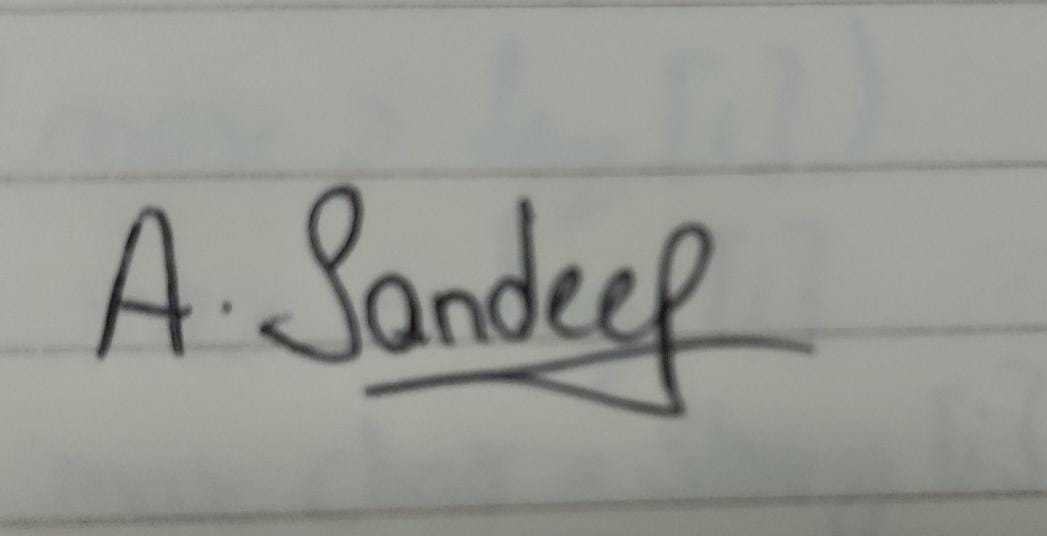 A. Sandeep